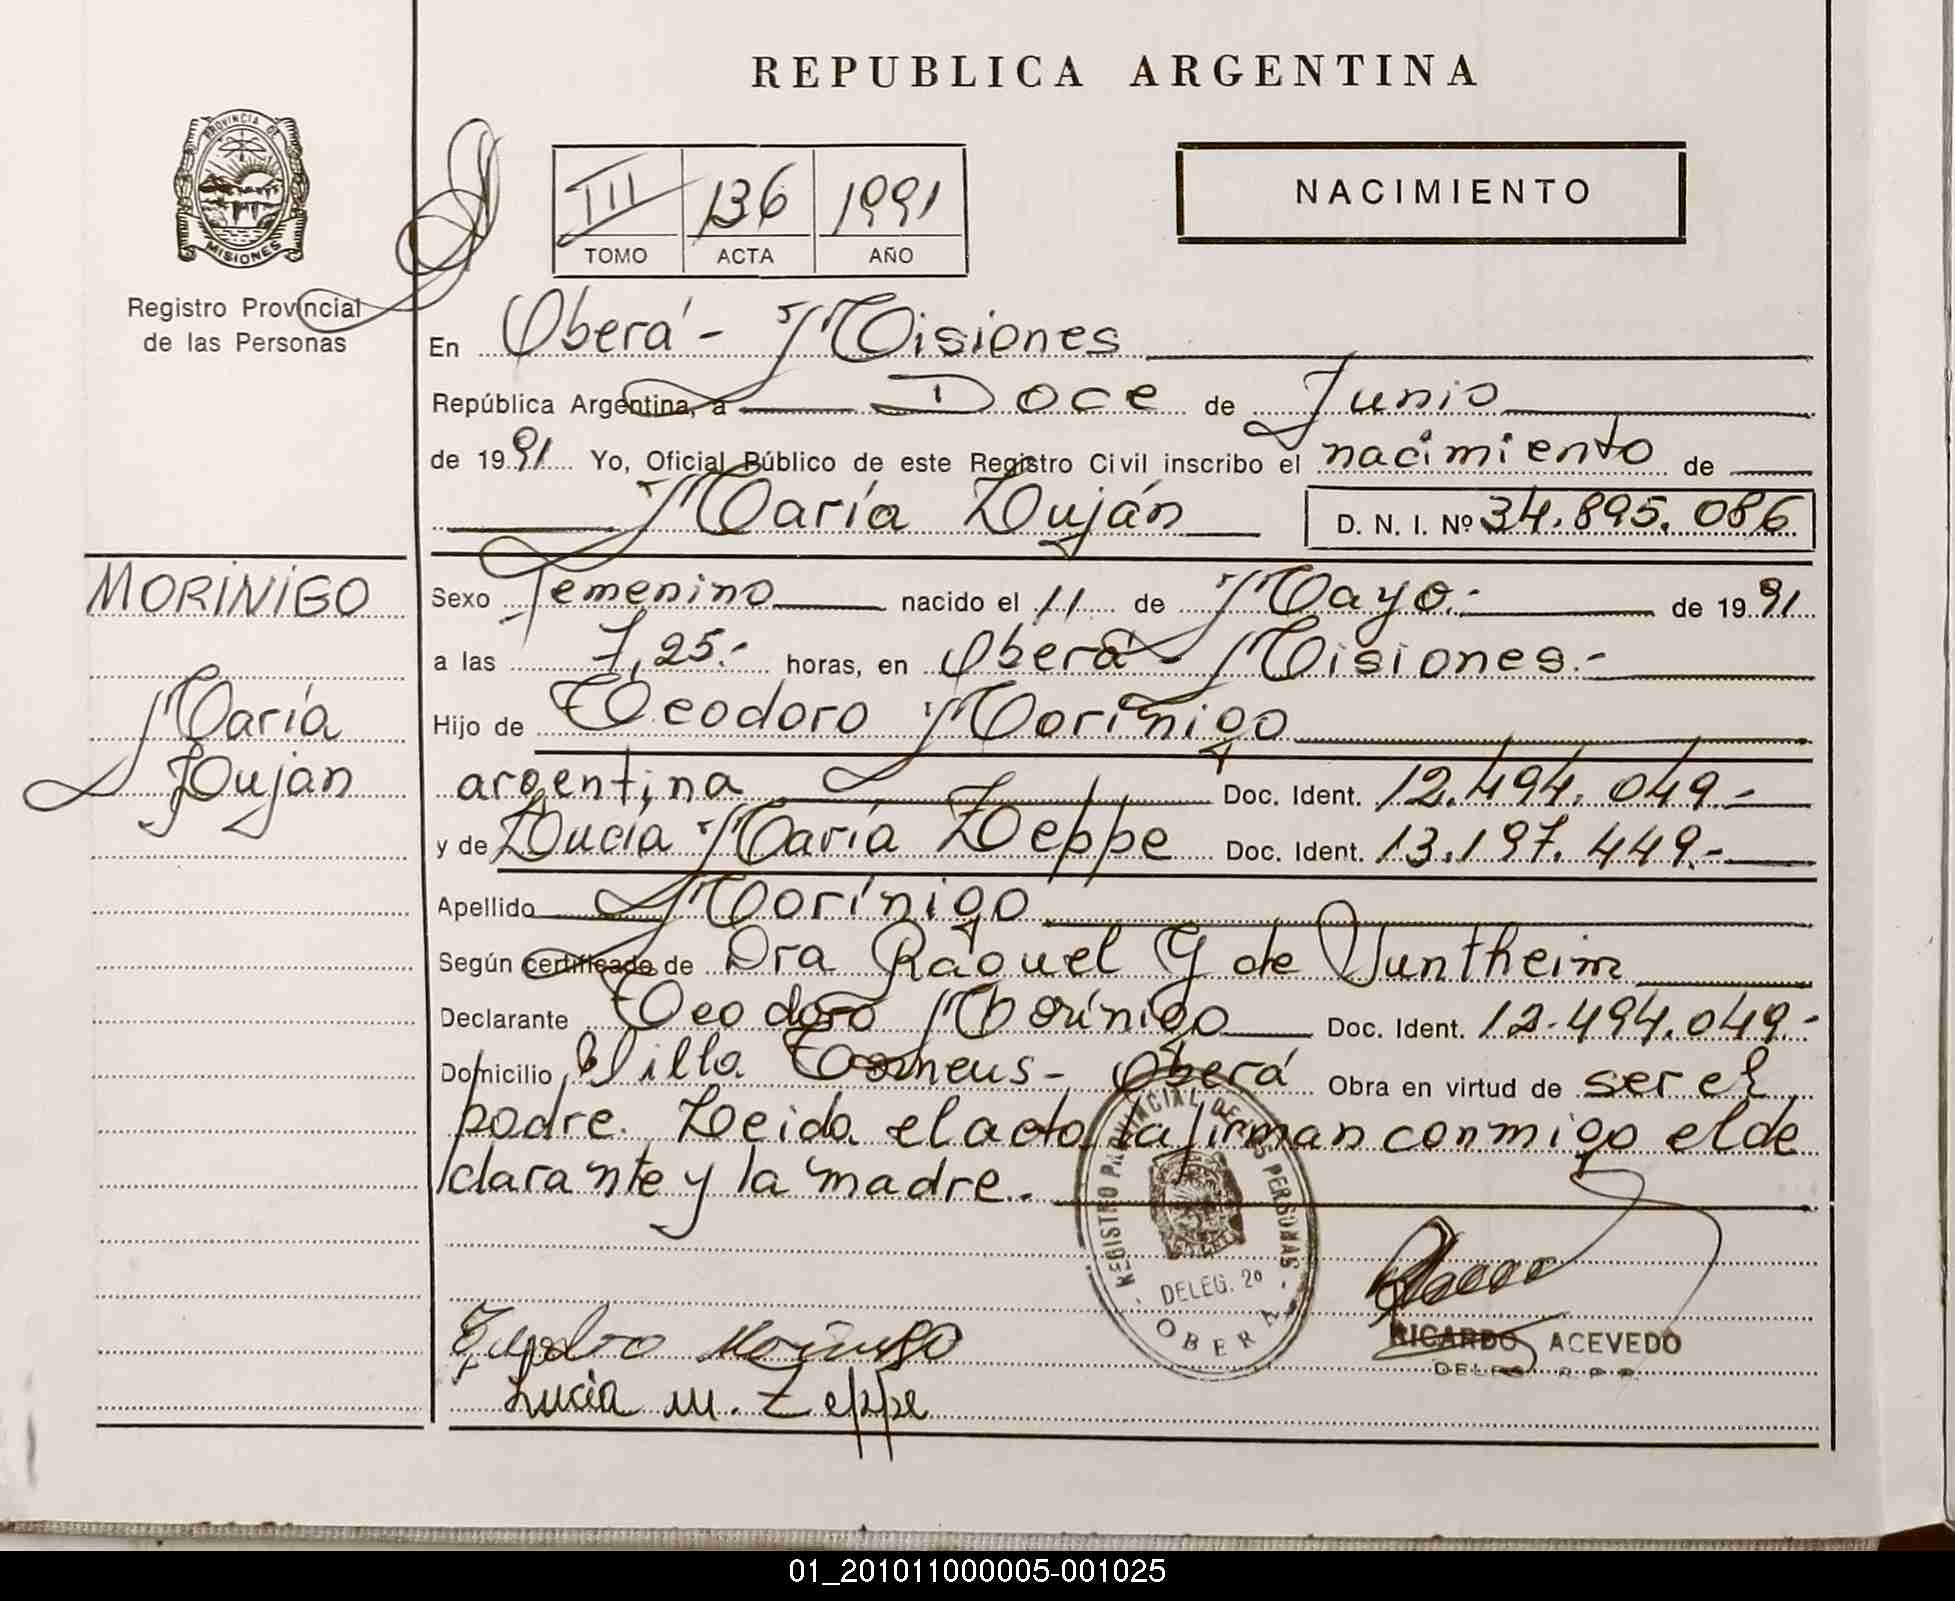 REPUBLICA ARGENTINA
PROVINCIA DE
MISIONES
Registro Provincial
de las Personas
III 136 1991
TOMO ACTA AÑO
NACIMIENTO
En Oberá - Misiones
República Argentina, a Doce de Junio
de 1991 Yo, Oficial Público de este Registro Civil inscribo el nacimiento de
María Luján D. N. I. Nº 34.895.086
MORINIGO
María
Luján
Sexo Femenino nacido el 11 de Mayo.- de 1991
a las 7,25.- horas, en Oberá - Misiones.-
Hijo de Teodoro Morínigo
argentina Doc. Ident. 12.494.049.-
y de Lucía María Zeppe Doc. Ident. 13.197.449.-
Apellido Morínigo
Según certificado de Dra Raquel G de
Declarante Teodoro Morínigo Doc. Ident. 12.494.049.-
Domicilio Villa - Oberá Obra en virtud de ser el
padre. Leida el acta la firman conmigo el de
clarante y la madre.
REGISTRO PROVINCIAL DE LAS PERSONAS
DELEG. 2º
OBERA
RICARDO ACEVEDO
Lucia M. Zeppe
01_201011000005-001025